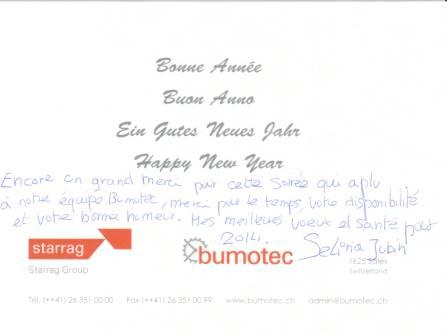 Bonne Année
Buon Anno
Ein Gutes Neues Jahr
Happy New Year
Encore un grand merci pour cette soirée qui a plu
à notre équipe Bumotec, merci par le temps, votre disponibilité
et votre bonne humeur. Mes meilleurs voeux et santé pour
2014.
starrag
bumotec
Starrag Group
1625 Sâles
Switzerland
Tél. (++41) 26 351 00 00 Fax (++41) 26 351 00 99 www.bumotec.ch admin@bumotec.ch